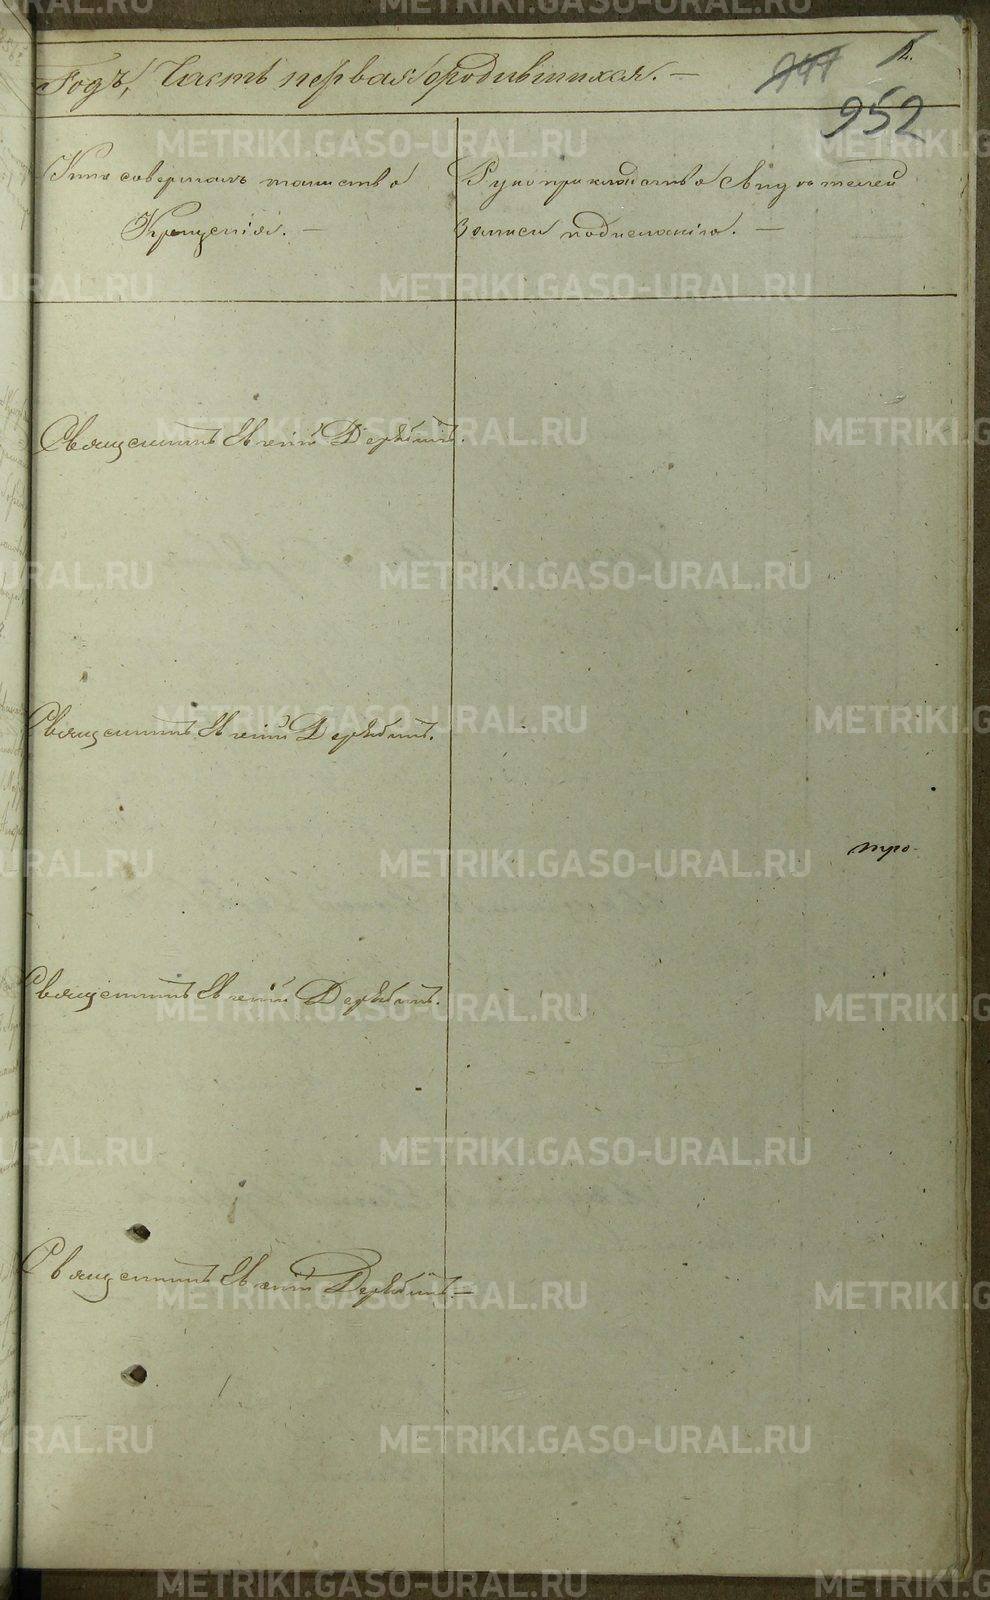 Годъ, Часть первая о родившихся. —
2.
952
Кто совершалъ таинство
Крещенія. —
Рукоприкладство свидѣтелей
записи по желанію. —
Священникъ Евгеній Дерябинъ.
Священникъ Евгеній Дерябинъ.
тро-
Священникъ Евгеній Дерябинъ.
Священникъ Евгеній Дерябинъ —
METRIKI.GASO-URAL.RU